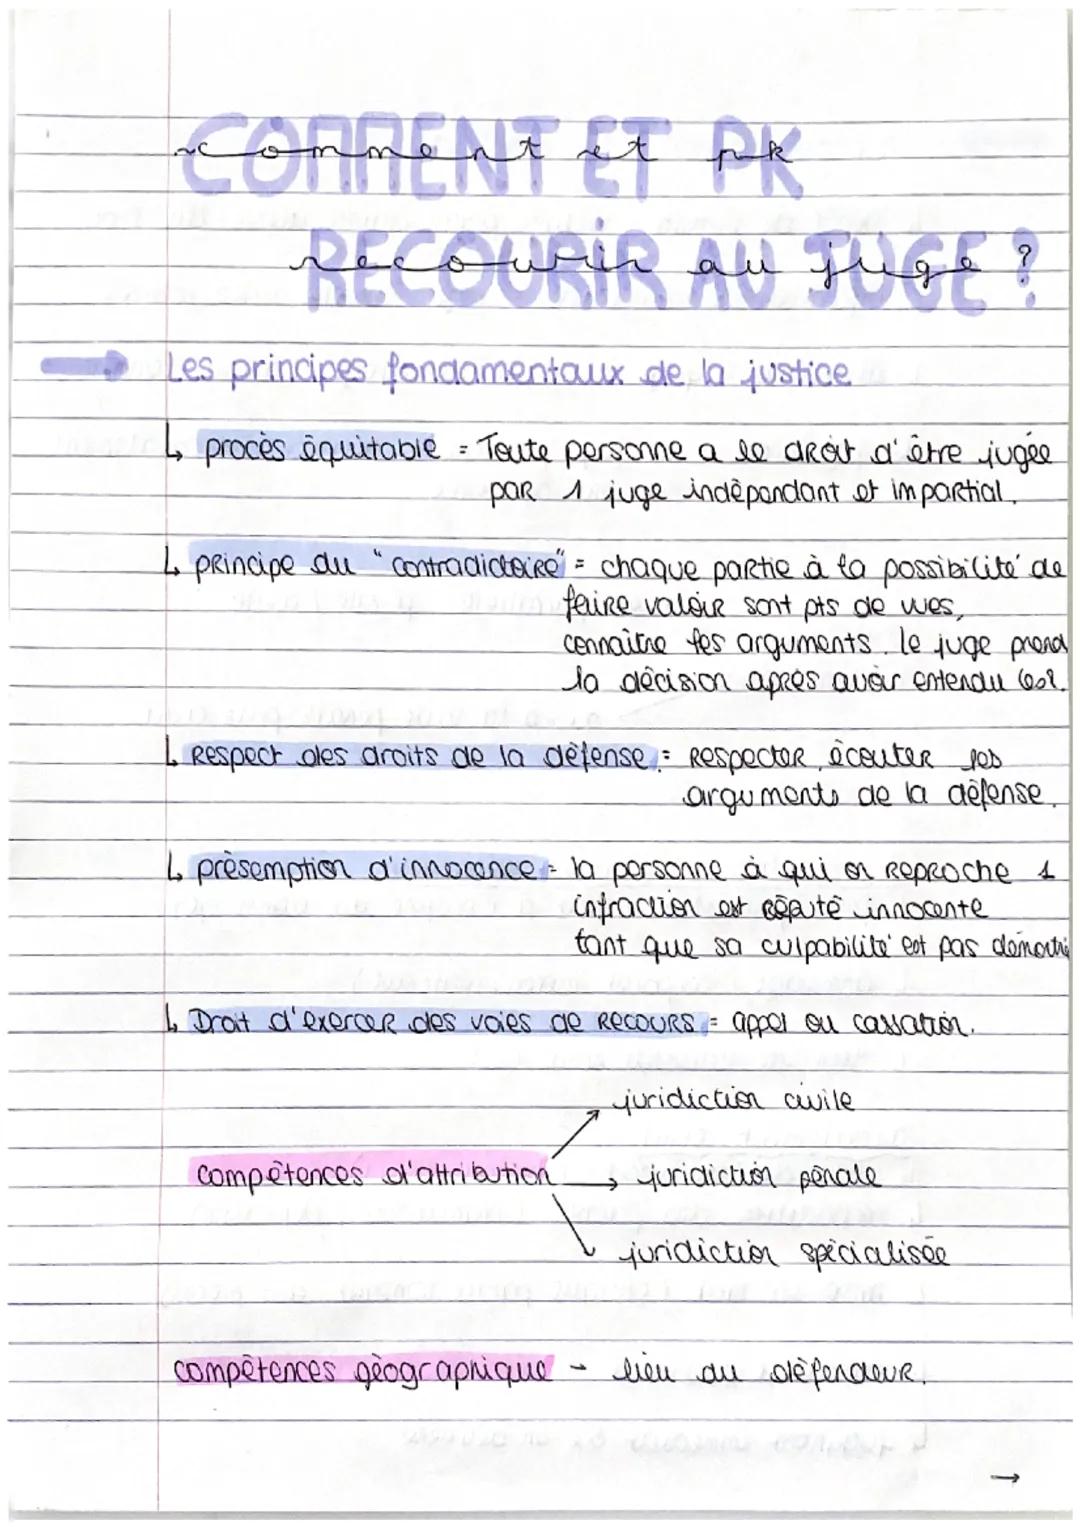 COMMENT ET PK
comment et pk
RECOURIR AU JUGE ?
recourir au juge ?
Les principes fondamentaux de la justice
↳ procès équitable = Toute personne a le droit d'être jugée
par 1 juge indépendant et impartial.
↳ principe du "contradictoire" = chaque partie à la possibilité de
faire valoir sont pts de vues,
connaître les arguments. le juge prend
la décision après avoir entendu les 2.
↳ Respect des droits de la défense : = Respecter, écouter les
arguments de la défense.
↳ présemption d'innocence = la personne à qui on reproche 1
infraction est réputé innocente
tant que sa culpabilité est pas démontré
↳ Droit d'exercer des voies de recours = appel ou cassation.
juridiction civile
compétences d'attribution → juridiction pénale
juridiction spécialisée
compétences géographique - lieu du défendeur.
→